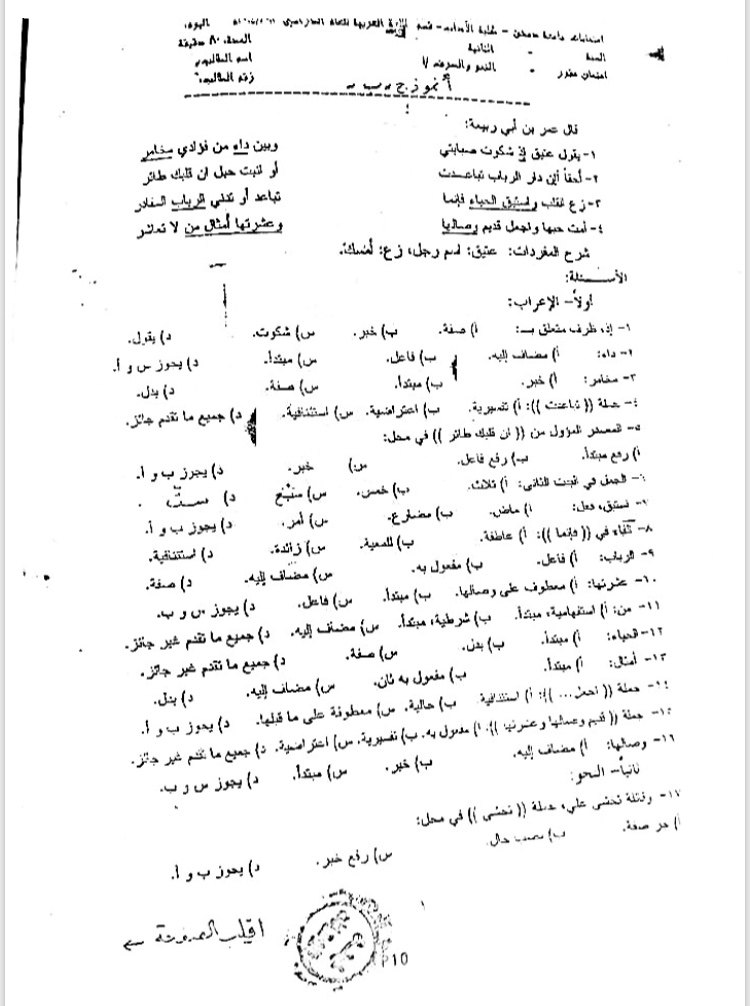 امتحانات جامعة دمشق - كلية الآداب - قسم اللغة العربية للعام الدراسي اليوم:
السنة الثانية المدة: ٨٠ دقيقة
امتحان مقرر النحو والصرف /١ اسم الطالب:
رقم الطالب:
أنموذج - ب -
قال عمر بن أبي ربيعة:
١- يقول عتيق إذ شكوت صبابتي وبين داء من فؤادي مخامر
٢- أحقاً أإن دار الرباب تباعدت أو انبت حبل ان قلبك طائر
٣- زع القلب واستبق الحياء فإنما تباعد أو تدني الرباب المقادر
٤- أمت حبها واجعل قديم وصالها وعشرتها أمثال من لا تعاشر
شرح المفردات: عتيق: اسم رجل، زع: أمسك.
الأسئلة:
أولاً- الإعراب:
١- إذ، ظرف متعلق بـ: أ) صفة. ب) خبر. س) شكوت. د) يقول.
٢- داء: أ) مضاف إليه. ب) فاعل. س) مبتدأ. د) يجوز س و أ.
٣- مخامر: أ) خبر. ب) مبتدأ. س) صفة. د) بدل.
٤- جملة (( تباعدت )): أ) تفسيرية. ب) اعتراضية. س) استئنافية. د) جميع ما تقدم جائز.
٥- المصدر المؤول من (( ان قلبك طائر )) في محل:
أ) رفع مبتدأ. ب) رفع فاعل. س) خبر. د) يجوز ب و أ.
٦- الجمل في البيت الثاني: أ) ثلاث. ب) خمس. س) سبع د) ست .
٧- استبق، فعل: أ) ماض. ب) مضارع. س) أمر. د) يجوز ب و أ.
٨- الفاء في (( فإنما )): أ) عاطفة. ب) للمعية. س) زائدة. د) استئنافية.
٩- الرباب: أ) فاعل. ب) مفعول به. س) مضاف إليه. د) صفة.
١٠- عشرتها: أ) معطوف على وصالها. ب) مبتدأ. س) فاعل. د) يجوز س و ب.
١١- من: أ) استفهامية، مبتدأ. ب) شرطية، مبتدأ. س) مضاف إليه. د) جميع ما تقدم غير جائز.
١٢- الحياء: أ) مبتدأ. ب) بدل. س) صفة. د) جميع ما تقدم غير جائز.
١٣- أمثال: أ) مبتدأ. ب) مفعول به ثان. س) مضاف إليه. د) بدل.
١٤- جملة (( اجعل... )): أ) استئنافية ب) حالية. س) معطوفة على ما قبلها. د) يجوز ب و أ.
١٥- جملة (( قديم وصالها وعشرتها )): أ) مفعول به. ب) تفسيرية. س) اعتراضية. د) جميع ما تقدم غير جائز.
١٦- وصالها: أ) مضاف إليه. ب) خبر. س) مبتدأ. د) يجوز س و ب.
ثانياً- النحو:
١٧- وقائلة تخشى علي، جملة (( تخشى )) في محل:
أ) جر صفة. ب) نصب حال. س) رفع خبر. د) يجوز ب و أ.
اقلب الصفحة
10